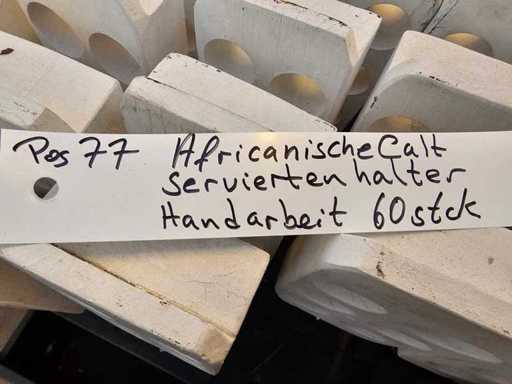 Pos 77 Africanische Calt
servierten halter
Handarbeit 60 stck